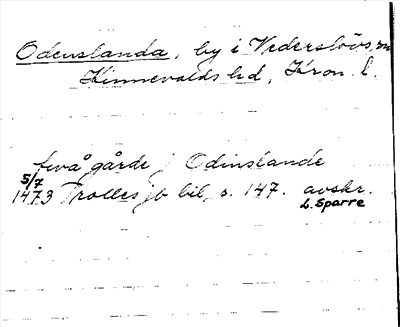 Odenslanda, by i Vederslövs sn
Kinnevalds hd, Kron. l.
två gårde j Odinslande
5/7
1473 Trolles jb bil, s. 147. avskr.
L. Sparre